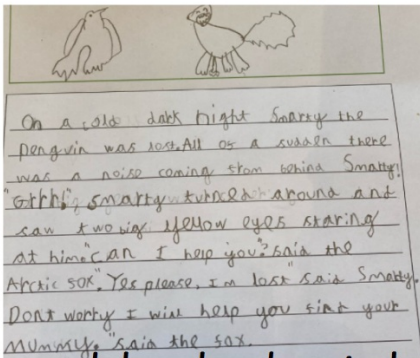 On a cold dark night Smarty the
penguin was lost. All of a sudden there
was a noise coming from behind Smarty!
"Grrh!" smarty turned around and
saw two big yellow eyes staring
at him. "can I help you?" said the
Arctic fox". Yes please, I'm lost" said Smarty.
Dont worry I will help you find your
Mummy." said the fox.